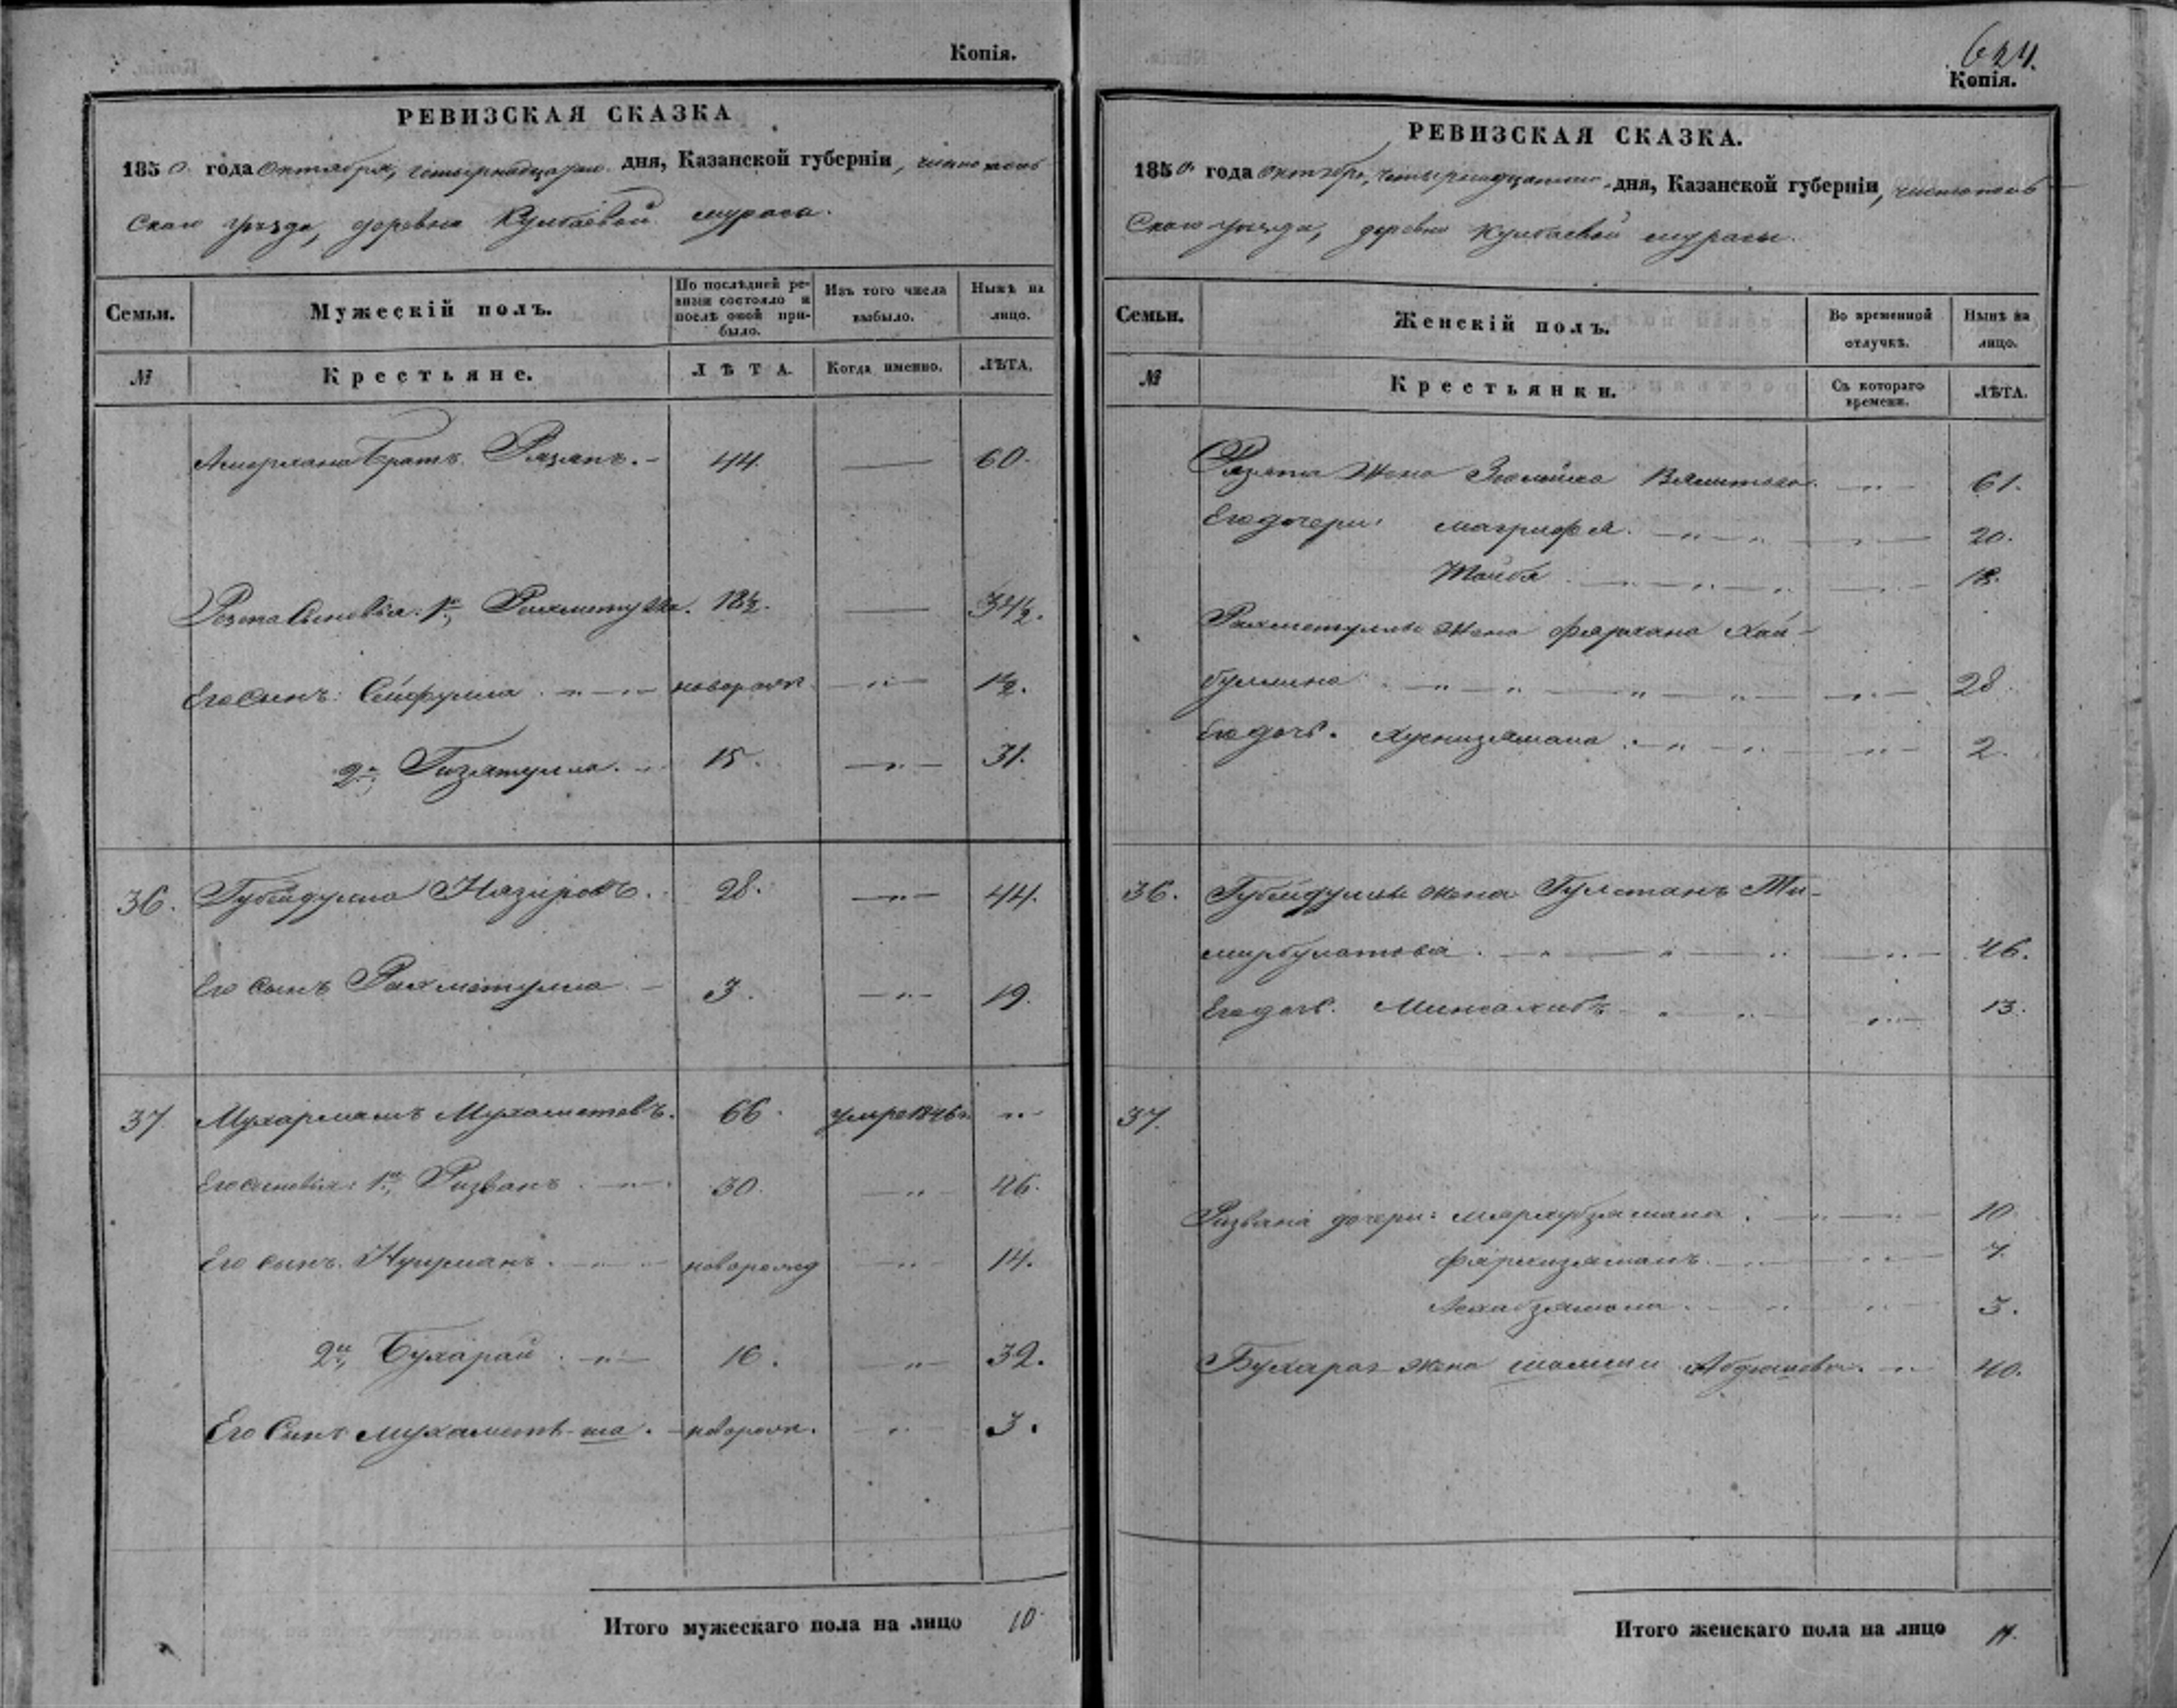 Копія.
РЕВИЗСКАЯ СКАЗКА
1850 года Октября, четырнадцатаго дня, Казанской губерніи, чистополь
скаго уѣзда, деревни Кулбаевой мураса.
Семьи. Мужескій полъ. По послѣдней ревизіи состояло и послѣ оной прибыло. Изъ того числа выбыло. Нынѣ на лицо.
№ Крестьяне. ЛѢТА. Когда именно. ЛѢТА.
Братъ Рязяпъ. 44. — 60.
Сыновья: 1й, Рахметулла. 18½. — 34½.
Его сынъ: Сейфулла. новорож. — 1½.
2й, Гизятулла. 15. — 31.
36. Губейдулла Назировъ. 28. — 44.
Его сынъ Рахметулла 3. — 19.
37. Мухармямъ Мухаметовъ. 66. умре 1846г. "
Его сыновья: 1й, Ризванъ. 30. — 46.
Его сынъ. Нугманъ. новорожд — 14.
2й, Бухарай. 16. — 32.
Его Сынъ мухаметъ-ша. новорож. — 3.
Итого мужескаго пола на лицо 10.
624.
Копія.
РЕВИЗСКАЯ СКАЗКА.
1850 года октября, четырнадцатаго дня, Казанской губерніи, чистополь
скаго уѣзда, деревни Кулбаевой мурасы.
Семьи. Женскій полъ. Во временной отлучкѣ. Нынѣ на лицо.
№ Крестьянки. Съ котораго времени. ЛѢТА.
Рязяпа Жена 61.
Его дочери: магрифя. 20.
18.
Рахметуллы жена фархана Хай-
буллина 28.
Его дочь. Хуснизямала. 2.
36. Губейдуллы жена Гулстанъ Ти-
мирбулатова. 46.
Его дочь. 13.
37.
Ризвана дочери: 10.
7.
3.
Бухарая жена 40.
Итого женскаго пола на лицо 11.